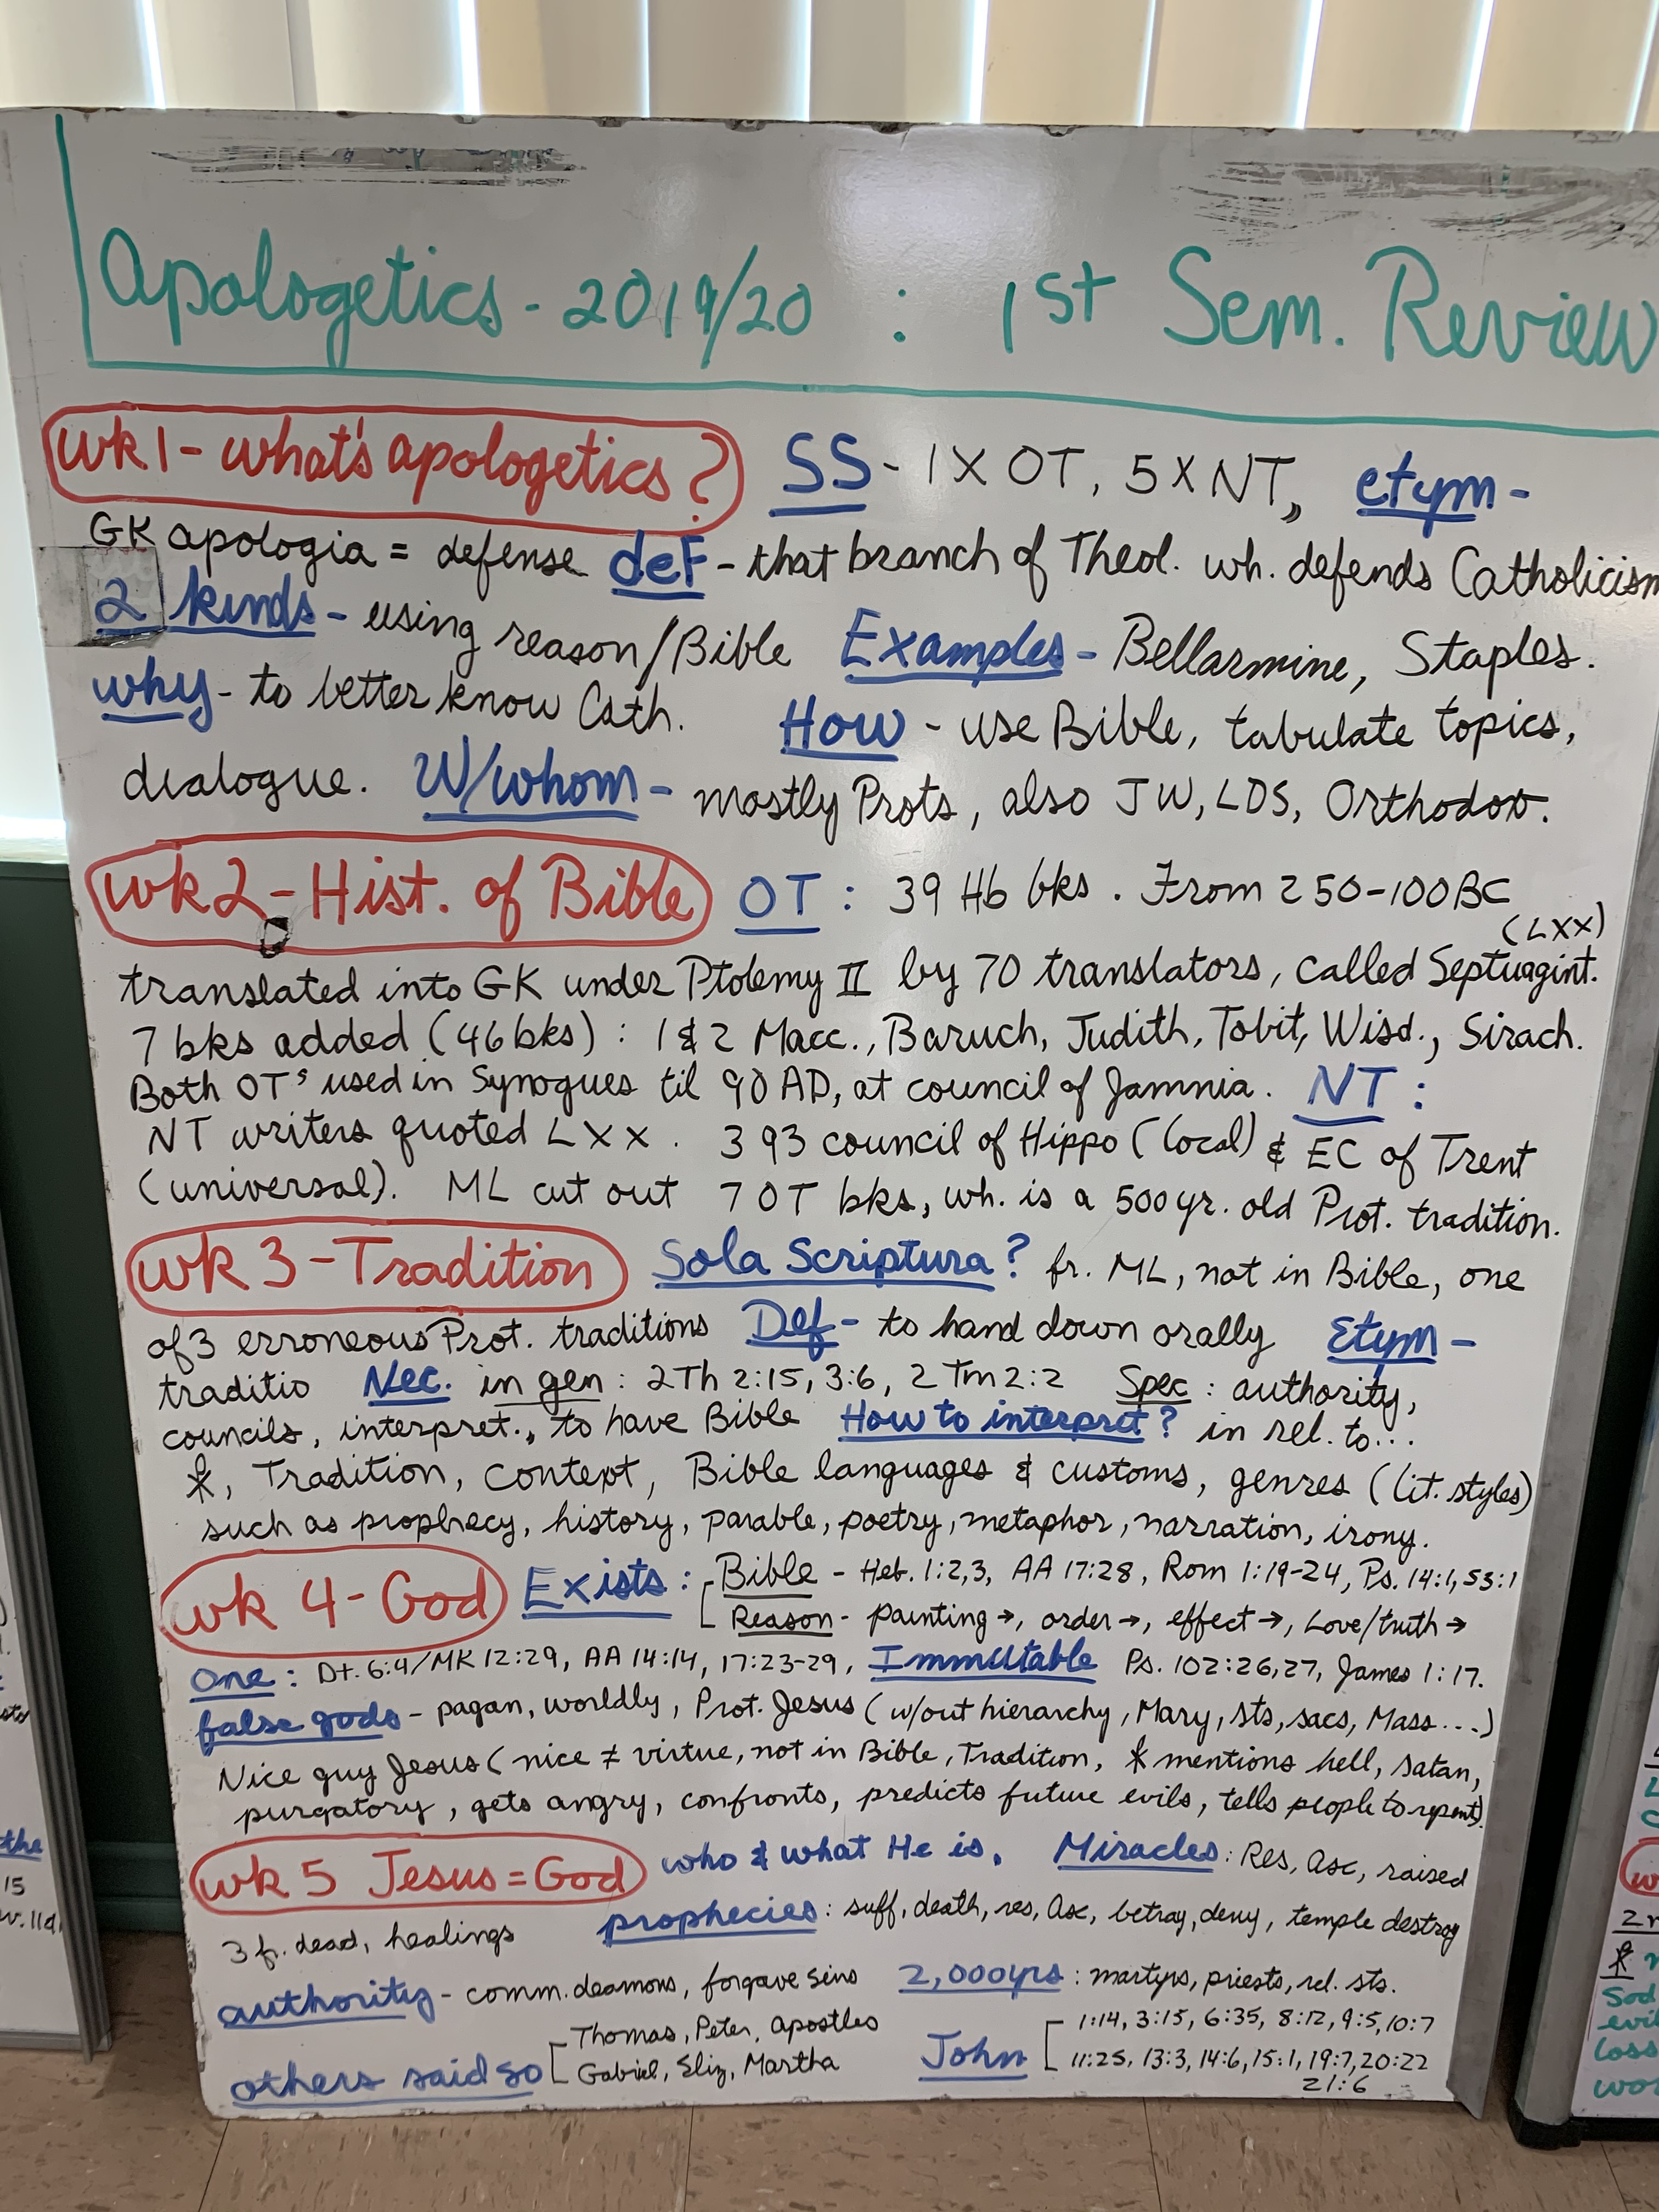 Apologetics - 2019/20 : 1st Sem. Review
wk 1 - what's apologetics? SS - 1 X OT, 5 X NT, etym -
GK apologia = defense def - that branch of Theol. wh. defends Catholicism
2 kinds - using reason/Bible Examples - Bellarmine, Staples.
why - to better know Cath. How - use Bible, tabulate topics,
dialogue. W/whom - mostly Prots, also JW, LDS, Orthodox.
wk 2 - Hist. of Bible OT : 39 Hb bks. From 250-100 BC
(LXX)
translated into GK under Ptolemy II by 70 translators, called Septuagint.
7 bks added (46 bks) : 1 & 2 Macc., Baruch, Judith, Tobit, Wisd., Sirach.
Both OTs used in Synogues til 90 AD, at council of Jamnia. NT :
NT writers quoted LXX. 393 council of Hippo (local) & EC of Trent
(universal). ML cut out 7 OT bks, wh. is a 500 yr. old Prot. tradition.
wk 3 - Tradition Sola Scriptura? fr. ML, not in Bible, one
of 3 erroneous Prot. traditions Def - to hand down orally Etym -
traditio Nec. in gen : 2 Th 2:15, 3:6, 2 Tm 2:2 Spec : authority,
councils, interpret., to have Bible How to interpret? in rel. to...
, Tradition, context, Bible languages & customs, genres (lit. styles)
such as prophecy, history, parable, poetry, metaphor, narration, irony.
wk 4 - God Exists : Bible - Heb. 1:2,3, AA 17:28, Rom 1:19-24, Ps. 14:1, 53:1
Reason - painting →, order →, effect →, Love/truth →
One : Dt. 6:4/MK 12:29, AA 14:14, 17:23-29, Immutable Ps. 102:26,27, James 1:17.
false gods - pagan, worldly, Prot. Jesus (w/out hierarchy, Mary, sts, sacs, Mass...)
Nice guy Jesus (nice ≠ virtue, not in Bible, Tradition, mentions hell, satan,
purgatory, gets angry, confronts, predicts future evils, tells people to repent).
wk 5 Jesus = God who & what He is. Miracles : Res, Asc, raised
3 fr. dead, healings prophecies : suff, death, res, Asc, betray, deny, temple destroy
authority - comm. deamons, forgave sins 2,000yrs : martyrs, priests, rel. sts.
others said so Thomas, Peter, Apostles
Gabriel, Eliz, Martha
John 1:14, 3:15, 6:35, 8:12, 9:5, 10:7
11:25, 13:3, 14:6, 15:1, 19:7, 20:22
21:6
the
15